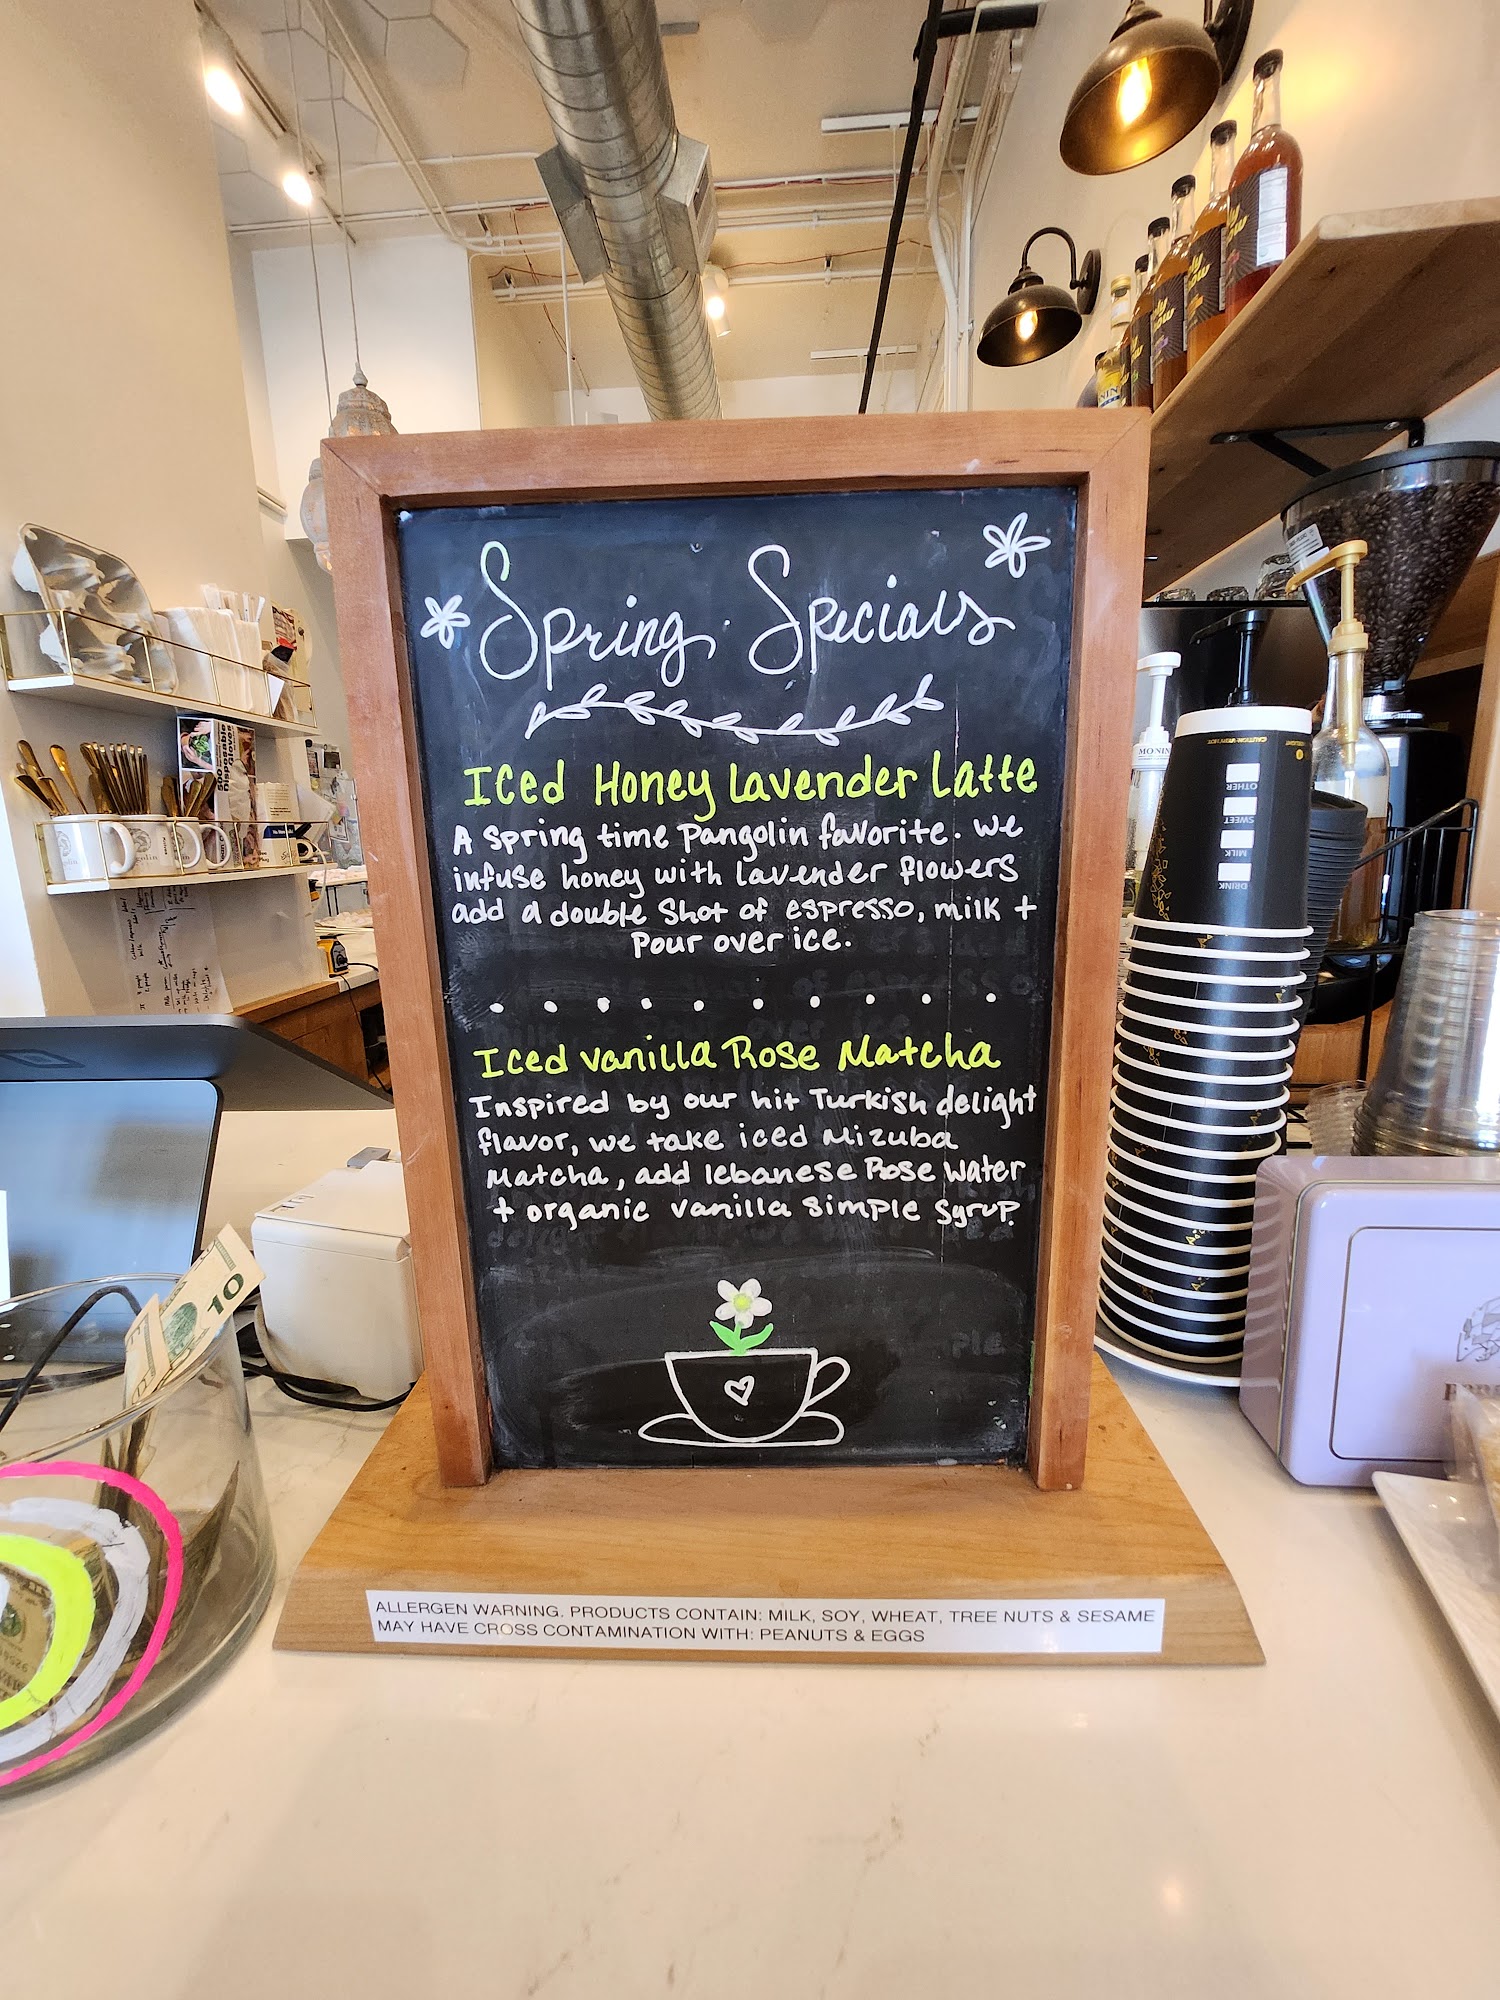 Spring Specials
Iced Honey Lavender Latte
A spring time Pangolin favorite. We
infuse honey with lavender flowers
add a double shot of espresso, milk +
pour over ice.
Iced Vanilla Rose Matcha
Inspired by our hit Turkish delight
flavor, we take iced Mizuba
Matcha, add lebanese Rose Water
+ organic vanilla simple syrup.
ALLERGEN WARNING. PRODUCTS CONTAIN: MILK, SOY, WHEAT, TREE NUTS & SESAME
MAY HAVE CROSS CONTAMINATION WITH: PEANUTS & EGGS
500
Disposable
Gloves
10
MONIN
CAUTION: VERY HOT
OTHER
SWEET
MILK
DRINK